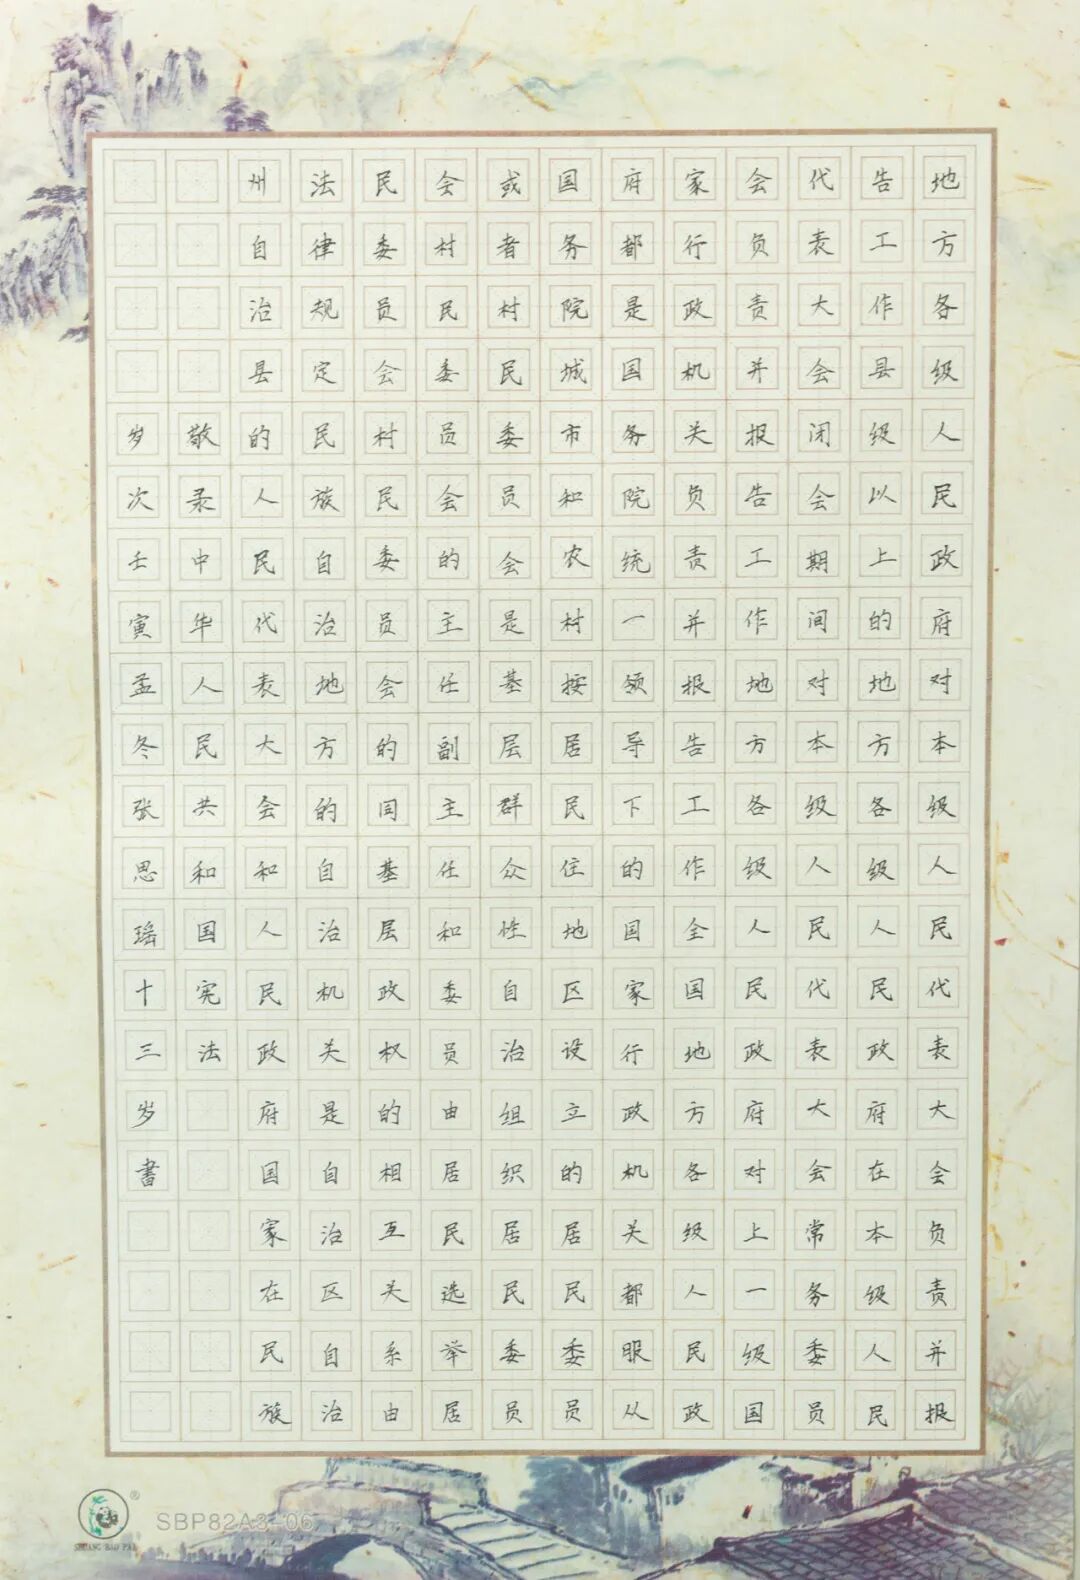 地方各级人民政府对本级人民代表大会负责并报
告工作县级以上的地方各级人民政府在本级人民
代表大会闭会期间对本级人民代表大会常务委员
会负责并报告工作地方各级人民政府对上一级国
家行政机关负责并报告工作全国地方各级人民政
府都是国务院统一领导下的国家行政机关都服从
国务院城市和农村按居民住地区设立的居民委员
或者村民委员会是基层群众性自治组织居民委员
会村民委员会的主任副主任和委员由居民选举居
民委员会村民委员会的同基层政权的相互关系由
法律规定民族自治地方的自治机关是自治区自治
州自治县的人民代表大会和人民政府国家在民族
敬录中华人民共和国宪法
岁次壬寅孟冬张思瑶十三岁書
SHUANG BAO PAI
®
SBP82A3-06